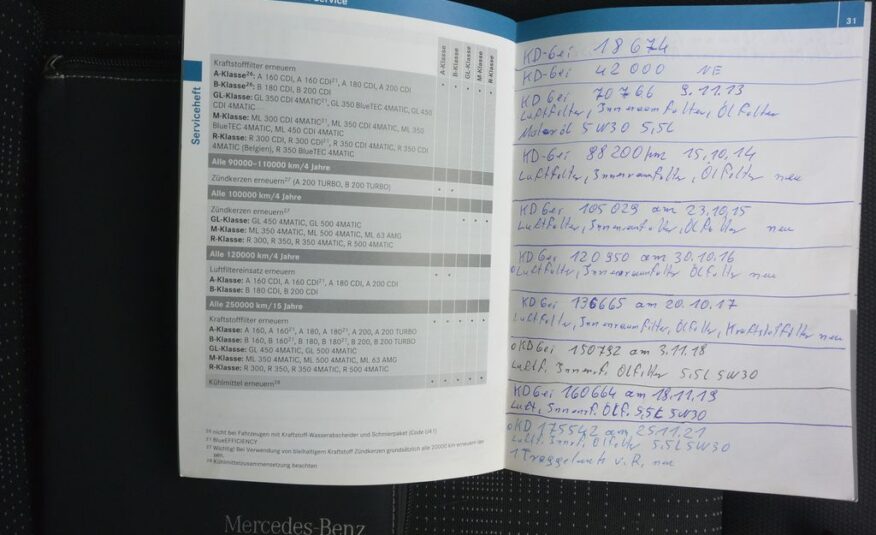 Service
Serviceheft
A-Klasse
B-Klasse
GL-Klasse
M-Klasse
R-Klasse
Kraftstofffilter erneuern
A-Klasse²⁶: A 160 CDI, A 160 CDI²¹, A 180 CDI, A 200 CDI
B-Klasse²⁶: B 180 CDI, B 200 CDI
GL-Klasse: GL 350 CDI 4MATIC²¹, GL 350 BlueTEC 4MATIC, GL 450
CDI 4MATIC
M-Klasse: ML 300 CDI 4MATIC²¹, ML 350 CDI 4MATIC, ML 350
BlueTEC 4MATIC, ML 450 CDI 4MATIC
R-Klasse: R 300 CDI, R 300 CDI²¹, R 350 CDI 4MATIC, R 350 CDI
4MATIC (Belgien), R 350 BlueTEC 4MATIC
Alle 90000–110000 km/4 Jahre
Zündkerzen erneuern²⁷ (A 200 TURBO, B 200 TURBO)
Alle 100000 km/4 Jahre
Zündkerzen erneuern²⁷
GL-Klasse: GL 450 4MATIC, GL 500 4MATIC
M-Klasse: ML 350 4MATIC, ML 500 4MATIC, ML 63 AMG
R-Klasse: R 300, R 350, R 350 4MATIC, R 500 4MATIC
Alle 120000 km/4 Jahre
Luftfiltereinsatz erneuern
A-Klasse: A 160 CDI, A 160 CDI²¹, A 180 CDI, A 200 CDI
B-Klasse: B 180 CDI, B 200 CDI
Alle 250000 km/15 Jahre
Kraftstofffilter erneuern
A-Klasse: A 160, A 160²¹, A 180, A 180²¹, A 200, A 200 TURBO
B-Klasse: B 160, B 160²¹, B 180, B 180²¹, B 200, B 200 TURBO
GL-Klasse: GL 450 4MATIC, GL 500 4MATIC
M-Klasse: ML 350 4MATIC, ML 500 4MATIC, ML 63 AMG
R-Klasse: R 300, R 350, R 350 4MATIC, R 500 4MATIC
Kühlmittel erneuern²⁸
²⁶ nicht bei Fahrzeugen mit Kraftstoff-Wasserabscheider und Schmierpaket (Code U41)
²¹ BlueEFFICIENCY
²⁷ Wichtig! Bei Verwendung von bleihaltigem Kraftstoff Zündkerzen grundsätzlich alle 20000 km erneuern las-
sen.
²⁸ Kühlmittelzusammensetzung beachten
Mercedes-Benz
31
KD-bei 18674
KD-bei 42000 NE
KD bei 70766 9.11.13
Luftfilter, Innenraumfilter, Ölfilter
Motoröl 5W30 5,5L
KD-bei 88200km 15.10.14
Luftfilter, Innenraumfilter, Ölfilter neu
KD bei 105029 am 23.10.15
Luftfilter, Innenraumfilter, Ölfilter neu
KD bei 120950 am 30.10.16
Luftfilter, Innenraumfilter Ölfilter neu
KD bei 136665 am 20.10.17
Luftfilter, Innenraumfilter, Ölfilter, Kraftstoffilter neu
KD bei 150792 am 3.11.18
Luftf. Innenf. Ölfilter 5,5L 5W30
KD bei 160664 am 18.11.19
Luft, Innenf. Ölf. 5,5L 5W30
KD 175542 am 25.11.21
Luftf. Innf. Ölfilter 5,5L 5W30
1 Traggelenk v.R. neu